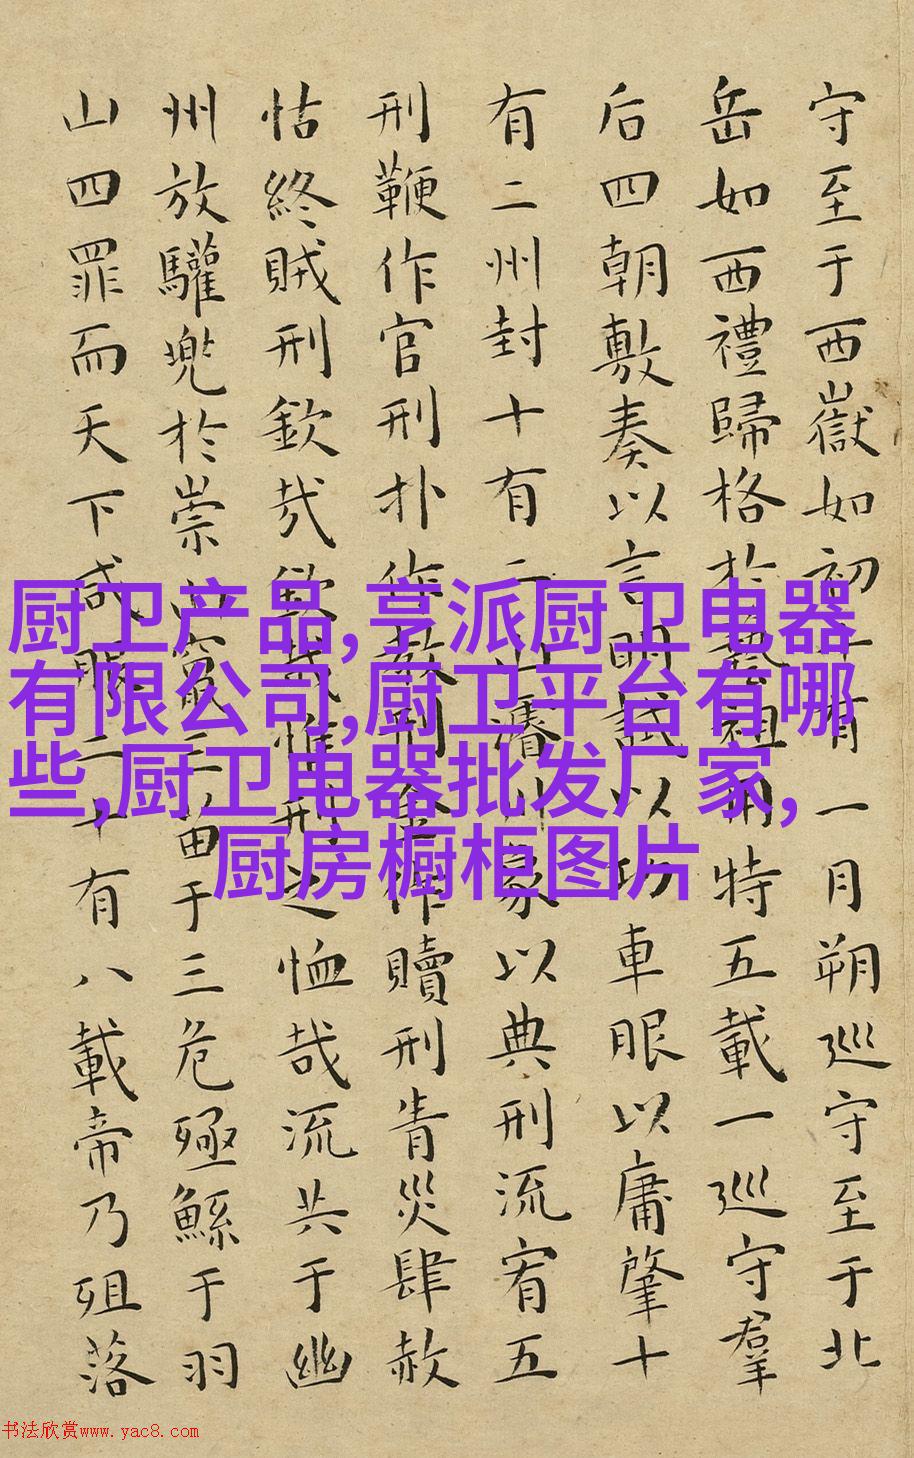 守至于西嶽如初十有一月朔巡守至于北
岳如西禮歸格於藝祖用特五載一巡守羣
后四朝敷奏以言明試以功車眼以庸肇十
有二州封十有二山濬川象以典刑流宥五
刑鞭作官刑扑作教刑金作贖刑眚災肆赦
怙終賊刑欽哉欽哉惟刑之恤哉流共于幽
州放驩兜於崇山竄三苗于三危殛鯀于羽
山四罪而天下咸服二十有八載帝乃殂落
厨卫产品,亨派厨卫电器
有限公司,厨卫平台有哪
些,厨卫电器批发厂家,
厨房橱柜图片
书法欣赏www.yac8.com